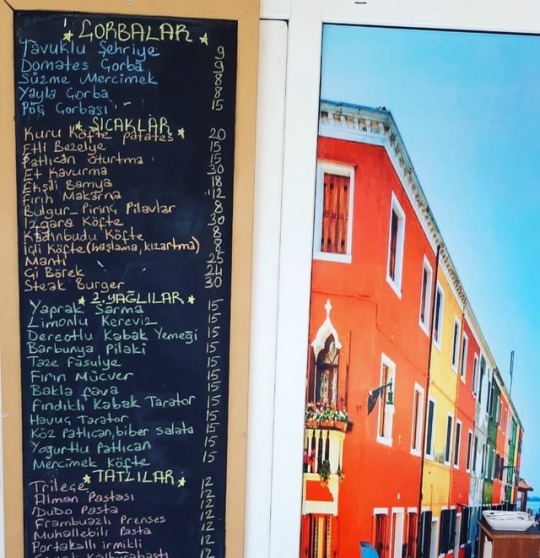 ÇORBALAR
Tavuklu Şehriye 9
Domates Çorba 9
Süzme Mercimek 8
Yayla Çorba 8
Pöç Çorbası 15
SICAKLAR
Kuru Köfte patates 20
Etli Bezelye 15
Patlıcan oturtma 15
Et Kavurma 30
Ekşili Bamya 18
Fırın Makarna 12
Bulgur-Pirinç Pilavlar 8
Izgara Köfte 30
Kadınbudu Köfte 8
İçli Köfte (haşlama, kızartma) 8
Mantı 25
Çi Börek 24
Steak Burger 30
Z.YAĞLILAR
Yaprak Sarma 15
Limonlu Kereviz 15
Dereotlu Kabak Yemeği 15
Barbunya Pilaki 15
Taze Fasulye 15
Fırın Mücver 15
Bakla fava 15
Fındıklı Kabak Tarator 15
Havuç Tarator 15
Köz Patlıcan, biber salata 15
Yoğurtlu Patlıcan 15
Mercimek Köfte 15
TATLILAR
Trileçe 12
Alman Pastası 12
Dubo Pasta 12
Frambuazlı Prenses 12
Muhallebili Pasta 12
Portakallı irmikli 12